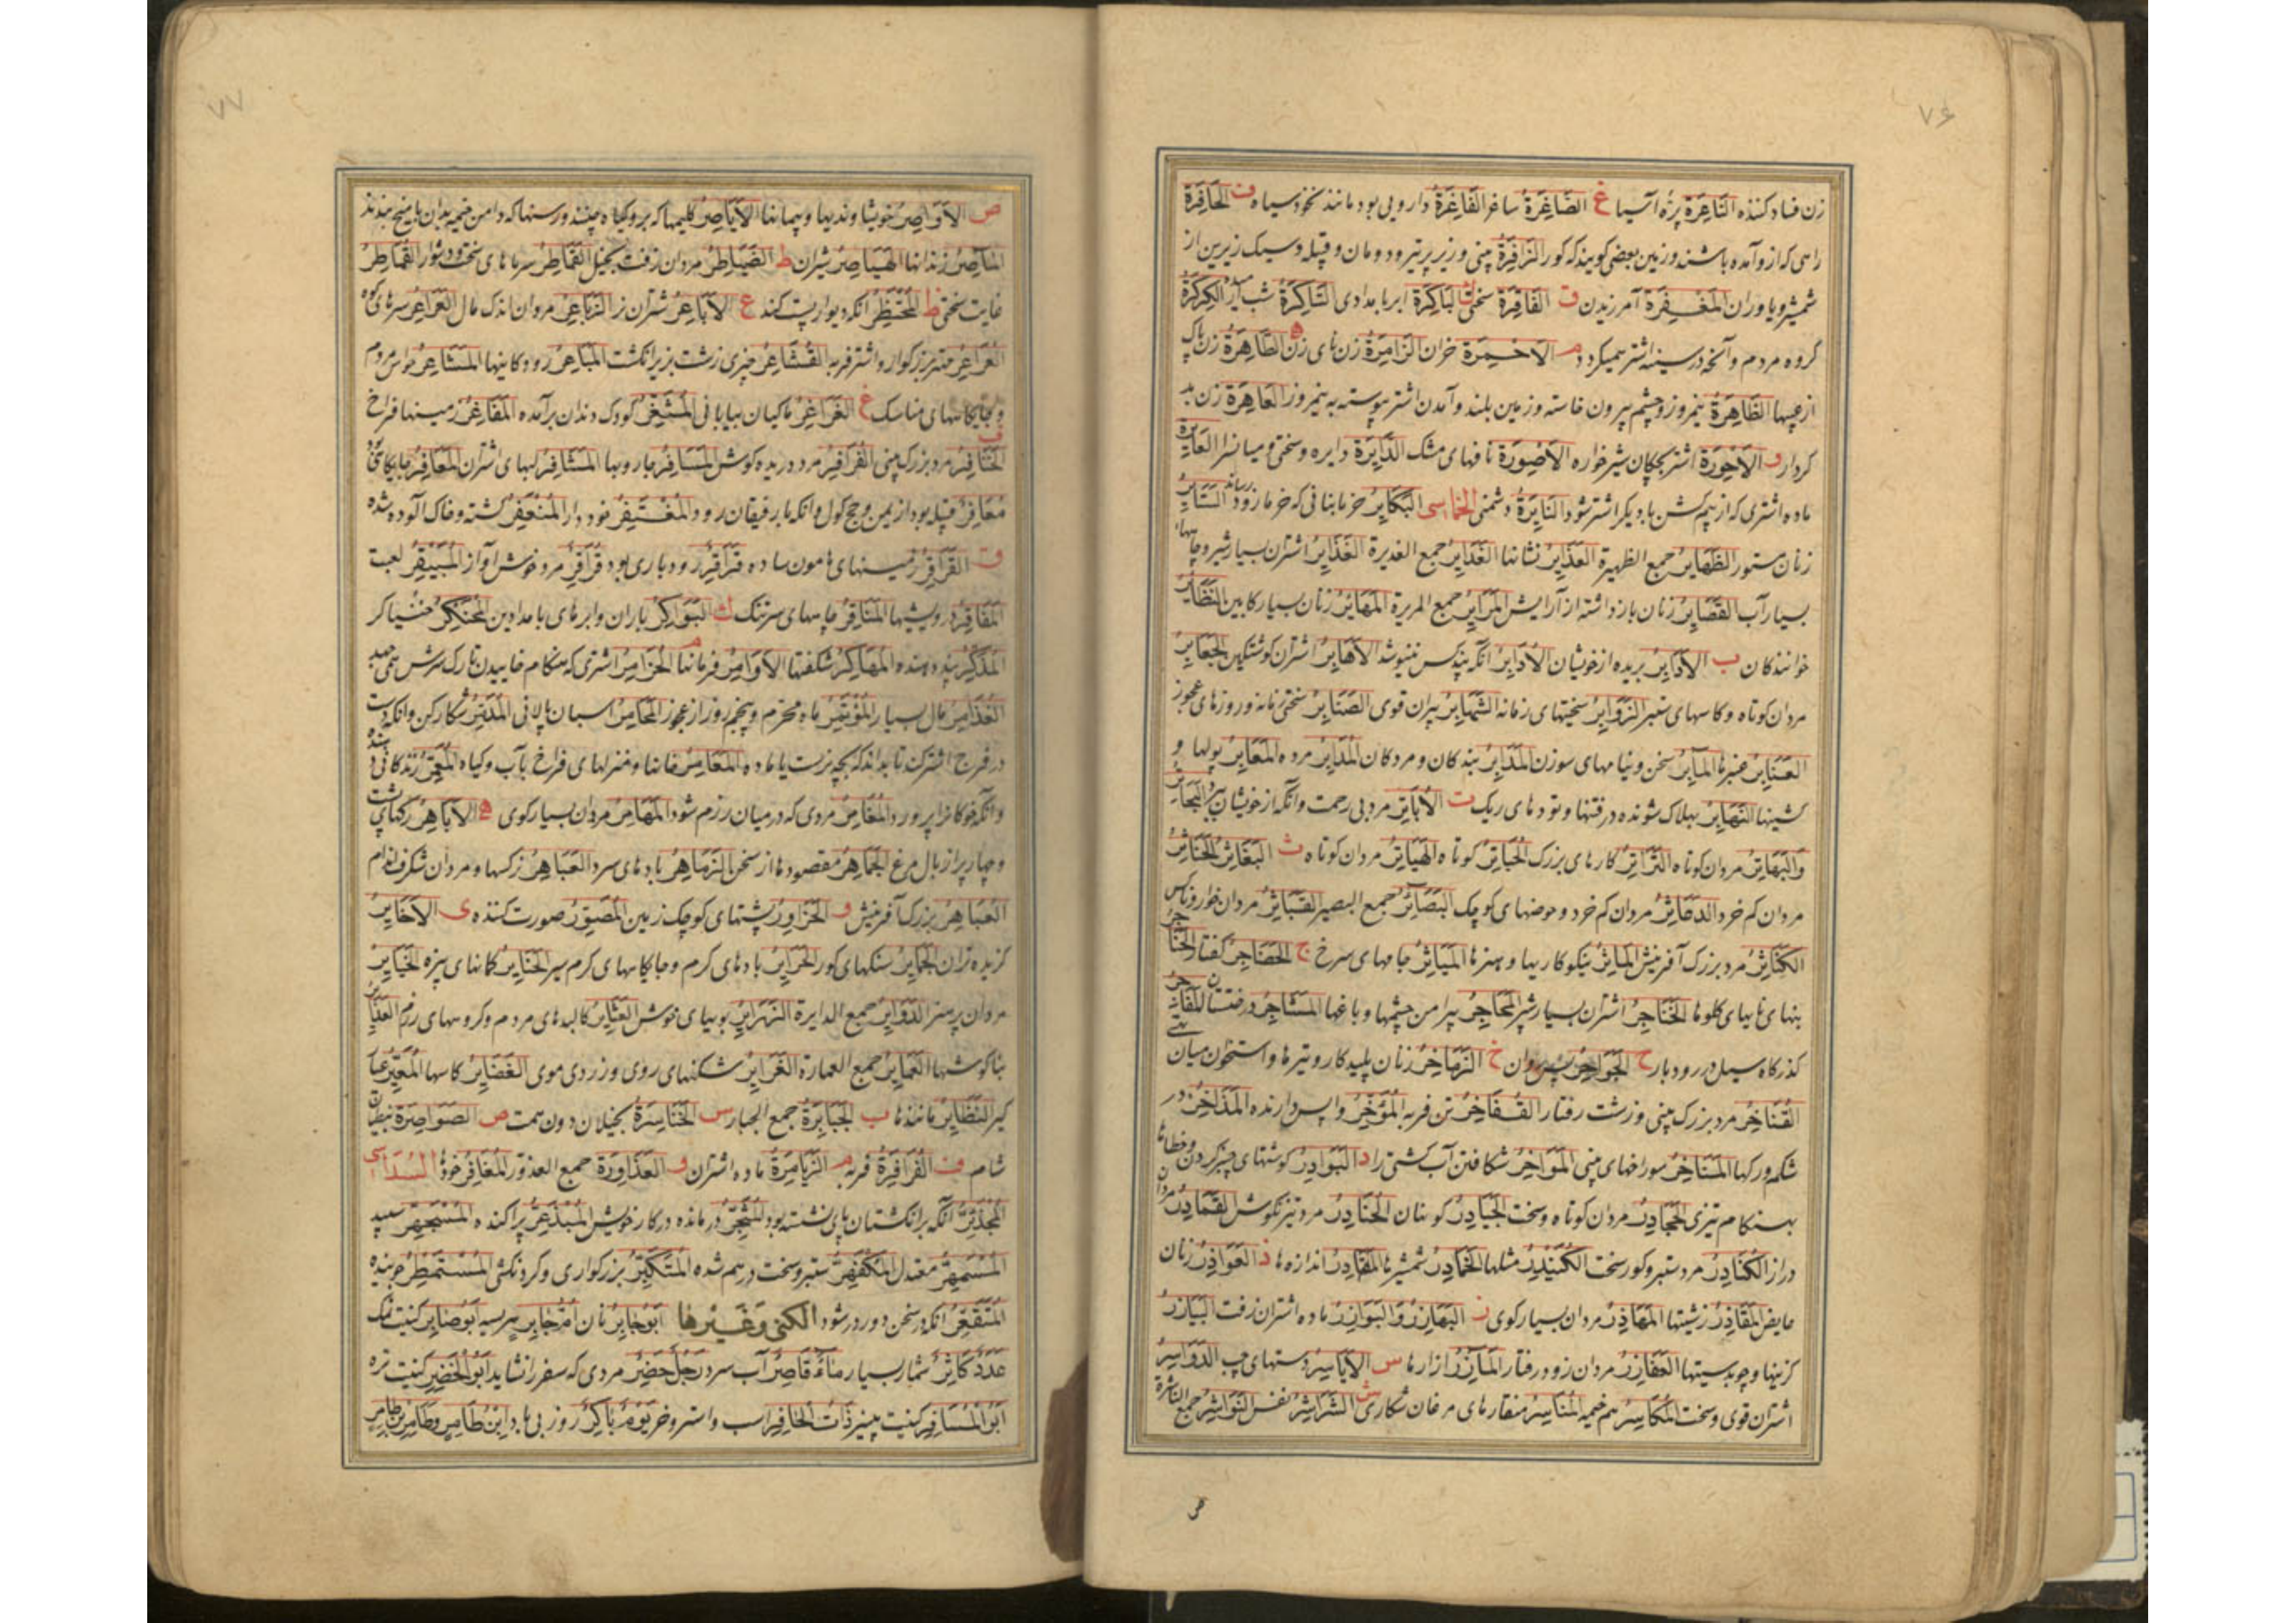 ۷۶
زن فساد کننده النَّاعِرَة پرّه آسیا غ الصَّاغِرَةُ ساغر الفَاغِرَةُ دارویی بود مانند نخود سیاه ف الحَافِرَة
راهی که ازو آمده باشند و زمین بعضی گویند که گور الزَافِرَةُ بینی و زیر پر تیر و دومان و قبیله و سبک زیرین از
شمشیر و یاوران المَغْفِرَة آمرزیدن ق الفَاقِرَة سختی ك البَاكِرَة ابر بامدادی الكِرْكِرَة
گروه مردم و آنچه در سینه اشتر م الاَخمِرَة خران الزَامِرَة زن نای زن ه الطَّاهِرَة زن پاک
از عیبها الظَّاهِرَة نیمروز و چشم بیرون خاسته و زمین بلند و آمدن اشتر پیوسته به نیمروز العَاهِرَة زن بد
کردار و الاَحْوِرَة اشتر بچگان شیرخواره الاَصْوِرَة نافهای مشک الدَّایِرَة دایره و سختی العَایِرَة
ماده اشتری که از با دیگر اشتر شود النَایِرَةُ دشمنی الخماسی البَكَایِرُ خرمابنانی که خرما زود رسانند السَّتَایِرُ
زنان مستور الظَّهَایِرُ جمع الظهیرة العَذَایِرُ نشانها الغَدَایِرُ جمع الغدیرة اشتران بسیار شیر و
بسیار آب القَصَایِرُ زنان بازداشته از آرایش المَرَایِرُ جمع المریرة المَهَایِرُ زنان بسیار کابین النَظَّایِرُ
خوانندگان ب الاُدَابِرُ بریده از خویشان الاُدَابِرُ آنکه پند کس ننیوشد الاَهَابِرُ اشتران گوشتگین الجَعَابِرُ
مردان کوتاه و کاسهای ستبر الزَوَابِرُ سختیهای زمانه پیران قوی الصَنَابِرُ سختی زمانه و روزهای عجوز
العَنَابِرُ عنبرها المَآبِرُ سخن و نیامهای سوزن المَدَابِرُ بندگان و مردگان مرده المَعَابِرُ پولها و
کشتیها النَهَابِرُ بهلاک شونده در فتنها و تودهای ریگ ت الاُبَاتِرُ مرد بی رحمت و آنکه از خویشان ببرد البَحَاتِرُ
وَالبَهَاتِرُ مردان کوتاه التَرَاتِرُ کارهای بزرگ الحُبَاتِرُ کوتاه الهَیَاتِرُ مردان کوتاه ث البَعَاثِرُ الحَنَاثِرُ
مردان کم خرد الدعَاثِرُ مردان کم خرد و حوضهای کوچک جمع البصیر مردان خوار و ناکس
الكُنَاثِرُ مرد بزرگ آفرینش المَآثِرُ نیکوکاریها و هنرها المَیَاثِرُ جامهای سرخ ج الحَضَاجِرُ کفتار الحَنَاجِرُ
بنهای نایهای گلوها الخَنَاجِرُ اشتران بسیار شیر المَحَاجِرُ پیرامن چشمها و باغها المَشَاجِرُ درختستان
گذرگاه سیل در رودبار ح الجَوَاحِرُ پس روان خ الزَمَاخِرُ زنان پلیدکار و تیرها و استخوان میان
القُنَاخِرُ مرد بزرگ بینی و زشت رفتار القُفَاخِرُ تن فربه المُؤَخِّرُ واپس دارنده المَذَاخِرُ در
شکم و رگها المَنَاخِرُ سوراخهای بینی المَوَاخِرُ شکافتن آب کشتی را د البَوَادِرُ گوشتهای و خطاها
بهنگام تیزی الحَجَادِرُ مردان کوتاه و سخت الجَیَادِرُ کوتهان الحُنَادِرُ مرد تیز نگرش القُمَادِرُ
دراز الكُنَادِرُ مرد ستبر و گور سخت الكُنَیْدِرُ مثلها شمشیرها المَقَادِرُ اندازه ها ذ العَوَاذِرُ زنان
حایض المَقَاذِرُ زشتیها المَهَاذِرُ مردان بسیار گوی ز البَهَازِرُ وَالبَوَازِرُ ماده اشتران زفت البَیَازِرُ
کزینها و چوبدستیها العَفَازِرُ مردان زود رفتار المَآزِرُ ازارها س الاَیَاسِرُ دستهای چپ الدَوَاسِرُ
اشتران قوی و سخت المُكَاسِرُ هم خیمه المَنَاسِرُ منقارهای مرغان شکاری ش الشَرَاشِرُ نفس النَوَاشِرُ جمع الناشرة
ص
۷۷
ص الاَوَاصِرُ خویشاوندیها و پیمانها الاَیَاصِرُ گلیمها که برو گیاه چینند و رسنها که دامن خیمه بدان با میخ بندند
المَآصِرُ زندانها الهَیَاصِرُ شیران ط الضَیَاطِرُ مردان زفت بخیل القَمَاطِرُ سرماهای سخت و دشوار القُمَاطِرُ
غایت سختی ظ المُحْتَظِرُ آنکه دیوار پست کند ع الاَبَاعِرُ شتران نر الزَبَاعِرُ مردان اندک مال العَرَاعِرُ سرهای کوه
العُرَاعِرُ مهتر بزرگوار و اشتر فربه القُشَاعِرُ چیزی زشت بزیر انگشت المَبَاعِرُ رودگانیها المَشَاعِرُ حواس مردم
و جایگاههای مناسک غ الغَرَاغِرُ ماکیان بیابانی المُثْغِرُ کودک دندان برآمده المَفَاغِرُ زمینها فراخ
ف الحُنَافِرُ مرد بزرگ بینی الفُرَافِرُ مرد دریده گوش المَسَافِرُ جاروبها المَشَافِرُ لبهای اشتران
مَعَافِرُ قبیله بود از یمن و حج کول و آنکه با رفیقان رود المُغْتَفِرُ خود دار المُنْعَفِرُ کشته و خاک آلوده شده
ق القَرَاقِرُ زمینهای هامون ساده قُرَاقِرُ رودباری بود قُرَاقِرُ مرد خوش آواز المُبَیْقِرُ لعبت
المَفَاقِرُ درویشیها المَنَاقِرُ چاههای سرتنگ ك البَوَاكِرُ باران و ابرهای بامدادین المُحْتَكِرُ خنیاگر
المُذَكِّرُ پند دهنده شگفتها الاَوَامِرُ فرمانها اشتری که هنگام خاییدن تارک سرش همی جهد
مال بسیار المُؤْتَمِرُ ماه محرّم و پنجم روز از عجوز اسبان پالانی المُدَمِّرُ شکارکن و آنکه دست
در فرج اشتر کند تا بداند که بچه نرست یا ماده المَعَامِرُ خانها و منزلهای فراخ با آب و گیاه المُعَمِّرُ زندگانی دهنده
المُغَامِرُ مردی که در میان رزم شود المَهَامِرُ مردان بسیارگوی ه الاَبَاهِرُ رگهای پشت
و چهار پر از بال مرغ الجَمَاهِرُ مقصودها از سخن الزَمَاهِرُ بادهای سرد العَبَاهِرُ نرگسها و مردان شگرف اندام
العُبَاهِرُ بزرگ آفرینش و الحَزَاوِرُ پشتهای کوچک زمین المُصَوِّرُ صورت کننده ی الاَخَایِرُ
گزیده تران الجَایِرُ سنگهای گور الحَرَایِرُ بادهای گرم و جایگاههای گرم سیر الحَنَایِرُ کمانهای بی زه الخَیَایِرُ
مردان پرهنر الدَوَایِرُ جمع الدایرة بویهای خوش العَثَایِرُ کالبدهای مردم و گروههای رزم العَذَایِرُ
بناگوشها العَمَایِرُ جمع العمارة الغَرَایِرُ شکنهای روی و زردی موی الغَضَایِرُ کاسها المُعَیِّرُ عیب
گیر النَظَایِرُ مانندها ب الجَبَابِرَةُ جمع الجبار س الخَنَاسِرَةُ بخیلان دون همت ص الصَوَاصِرَةُ نبطیان
شام ف الفُرَافِرَةُ فربه م الزَیَامِرَةُ ماده اشتران و العَذَاوِرَة جمع العذور المغَافِرُ خود السُداسی
المُجْذَئِرُّ آنکه بر انگشتان پای نشسته بود المُتَجِّرُ درمانده در کار خویش المُبْذَعِرُّ پراکنده المُسْجَهِرُّ سپید
المُسْمَهِرُّ معتدل المُكْفَهِرُّ ستبر و سخت درهم شده المُتَكَبِّرُ بزرگواری و گردنکشی المُسْتَمْطِرُ جوینده
المُتَقَعِّرُ آنکه در سخن دور در شود الكنی وغیرها اَبُو جَابِرٍ نان اُمُّ جَابِرٍ هریسه اَبُو صَابِرٍ کنیت نمک
عَدَدٌ كَاثِرٌ شمار بسیار مَاءٌ قَاصِرٌ آب سرد رَجُلٌ حَضِرٌ مردی که سفر را نشاید اَبُو الخَضِرِ کنیت تره
اَبُو المُسَافِرِ کنیت پنیر ذَاتُ الحَافِرِ اسب و استر و خر یَوْمٌ بَاكِرٌ روز بی باد اِبْنُ طَامِرٍ وطَامِرُ بْنُ طَامِرٍ